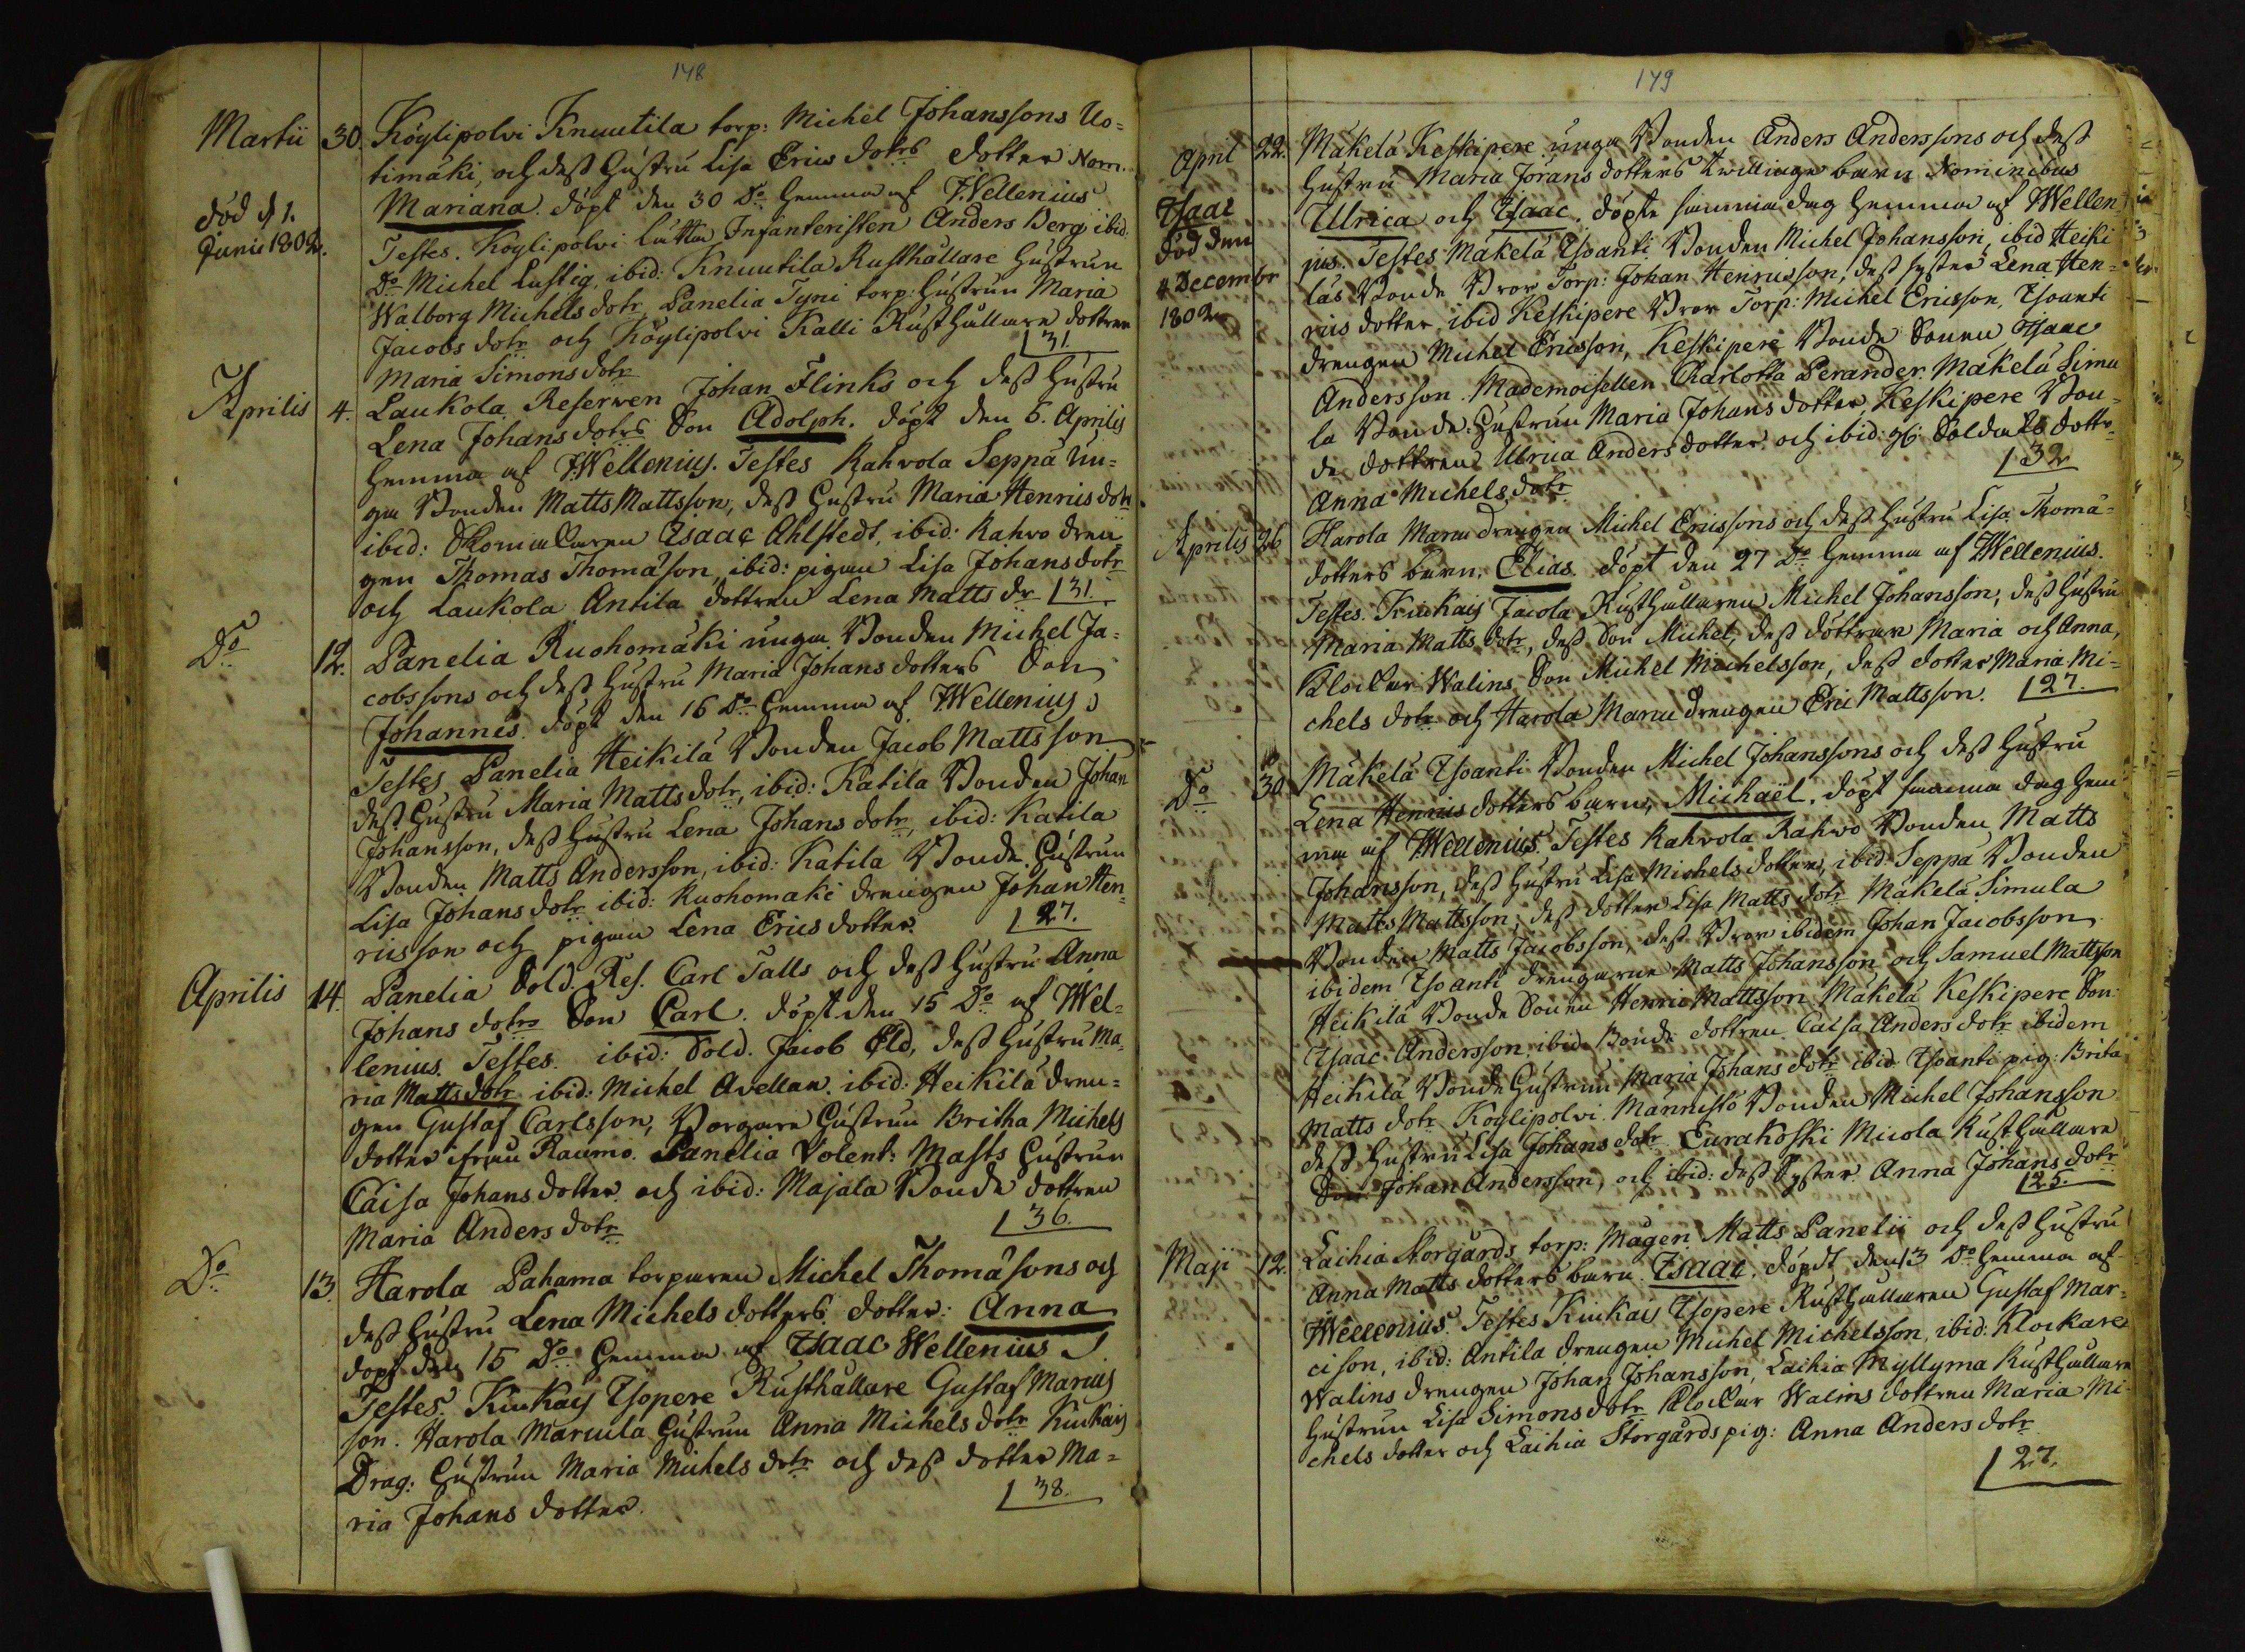 148
Martii 30. Köylipolvi Knuutila torp: Michel Johanssons Uo=
timäki, och dess Hustru Lisa Erics dotrs dotter Nom.
Mariana. döpt den 30 Do hemma af I Wellenius
död d 1. Junii 1802.
Testes. Köylipolvi Lutta Infanteristen Anders Berg ibid:
Do Michel Lustig, ibid: Knuutila Rusthållare Hustrun
Walborg Michels dotr Panelia Tyni torp: Hustrun Maria
Jacobs dotr och Köylipolvi Kalli Rusthållare dottren
Maria Simons dotr 31.
Aprilis 4. Laukola Reserven Johan Flinks och dess Hustru
Lena Johans dotrs Son Adolph. döpt den 5. Aprilis
hemma af I Wellenius. Testes Kahvola Seppä un=
ga Bonden Matts Mattsson, dess Hustru Maria Henrics dotr
ibid: Skomakaren Isaac Ahlstedt, ibid: Rahvo dren
gen Thomas Thomason, ibid: pigan Lisa Johans dotr
och Laukola Antila dottren Lena Matts dr 31.
Do 12. Panelia Ruohomäki unga Bonden Michel Ja=
cobssons och dess Hustru Maria Johans dotters Son
Johannes. döpt den 16 Do hemma af I Wellenius
Testes Panelia Heikilä Bonden Jacob Mattsson
dess Hustru Maria Matts dotr, ibid: Katila Bonden Johan
Johansson, dess Hustru Lena Johans dotr, ibid: Katila
Bonden Matts Andersson, ibid: Katila Bonde Hustrun
Lisa Johans dotr ibid: Ruohomäki drengen Johan Hen=
ricsson och pigan Lena Erics dotter. 27.
Aprilis 14. Panelia Sold. Res. Carl Talls och dess Hustru Anna
Johans dotrs Son Carl. döpt den 15 Do af I Wel=
lenius. Testes. ibid: Sold. Jacob Eld, dess Hustru Ma=
ria Matts dotr ibid: Michel Avellan. ibid: Heikilä dren=
gen Gustaf Carlsson, Borgare Hustrun Britha Michels
dotter ifrån Raumo. Panelia Volent: Masts Hustrun
Caisa Johans dotter och ibid: Majala Bonde dottren
Maria Anders dotr 36.
Do 13. Harola Pahama torparen Michel Thomasons och
dess Hustru Lena Michels dotters dotter: Anna
döpt den 15 Do hemma af Isaac Wellenius
Testes. Kiukais Isopere Rusthållare Gustaf Marcus
son. Harola Marcula Hustrun Anna Michels dotr Kiukais
Drag: Hustrun Maria Michels dotr och dess dotter Ma=
ria Johans dotter. 38.
149
April 22. Mäkelä Keskipere unga Bonden Anders Anderssons och dess
Hustru Maria Jörans dotters twillinge barn Nominibus
Isaac död den 4 Decembr 1802
Ulrica och Isaac, döpte samma dag hemma af I Wellen=
ius. Testes Mäkelä Isoanti Bonden Michel Johansson, ibid Heiki
läs Bonde Bror Torp: Johan Henricsson, dess syster Lena Hen=
rics dotter, ibid Keskipere Bror Torp: Michel Ericsson, Isoanti
drengen Michel Ericsson, Keskipere Bonde Sonen Isaac
Andersson. Mademoisellen Charlotta Perander. Mäkelä Simu
la Bonde: Hustrun Maria Johans dotter, Keskipere Bon=
de dottren Ulrica Anders dotter och ibid: 96. Soldats dottr
Anna Michels dotr 32
Aprilis 26 Harola Manu drengen Michel Ericssons och dess Hustru Lisa Thoma=
dotters barn. Elias. döpt den 27 Do hemma af I Wellenius.
Testes. Kiukais Jacola Rusthållaren Michel Johansson, dess Hustru
Maria Matts dotr, dess Son Michel, dess döttrar Maria och Anna,
Klockar Walins Son Michel Michelsson, dess dotter Maria Mi=
chels dotr och Harola Manu drengen Eric Mattsson. 27.
Do 30 Mäkelä Isoanti Bonden Michel Johanssons och dess Hustru
Lena Henrics dotters barn, Michaël. döpt samma dag hem
ma af I Wellenius. Testes Kahvola Rahvo Bonden Matts
Johansson, dess Hustru Lisa Michels dotter, ibid: Seppä Bonden
Matts Mattsson, dess dotter Lisa Matts dotr Mäkelä Simula
Bonden Matts Jacobsson, dess Bror ibidem Johan Jacobsson
ibidem Isoanti drengarne Matts Johansson och Samuel Mattsson
Heikilä Bonde Sonen Henric Mattsson Mäkelä Keskipere Son
Isaac Andersson, ibid: Bonde dottren Caisa Anders dotr ibidem
Heikilä Bonde Hustrun Maria Johans dotr ibid Isoanti pig: Brita
Matts dotr Köylipolvi Männistö Bonden Michel Johansson
dess Hustru Lisa Johans dotr Eurakoski Micola Rusthållare
Son Johan Andersson, och ibid: dess Syster Anna Johans dotr
25.
Maji 12. Laihia Storgårds torp: Mågen Matts Panelii och dess Hustru
Anna Matts dotters barn. Isaac, döpdt den 13 Do hemma af
I Wellenius. Testes Kiukais Isopere Rusthållaren Gustaf Mar=
cison, ibid: Antila drengen Michel Michelsson, ibid: Klockare
Walins drengen Johan Johansson, Laihia Myllyma Rusthållare
Hustrun Lisa Simons dotr Klockar Walins dottren Maria Mi=
chels dotter och Laihia Storgårds pig: Anna Anders dotr
27.